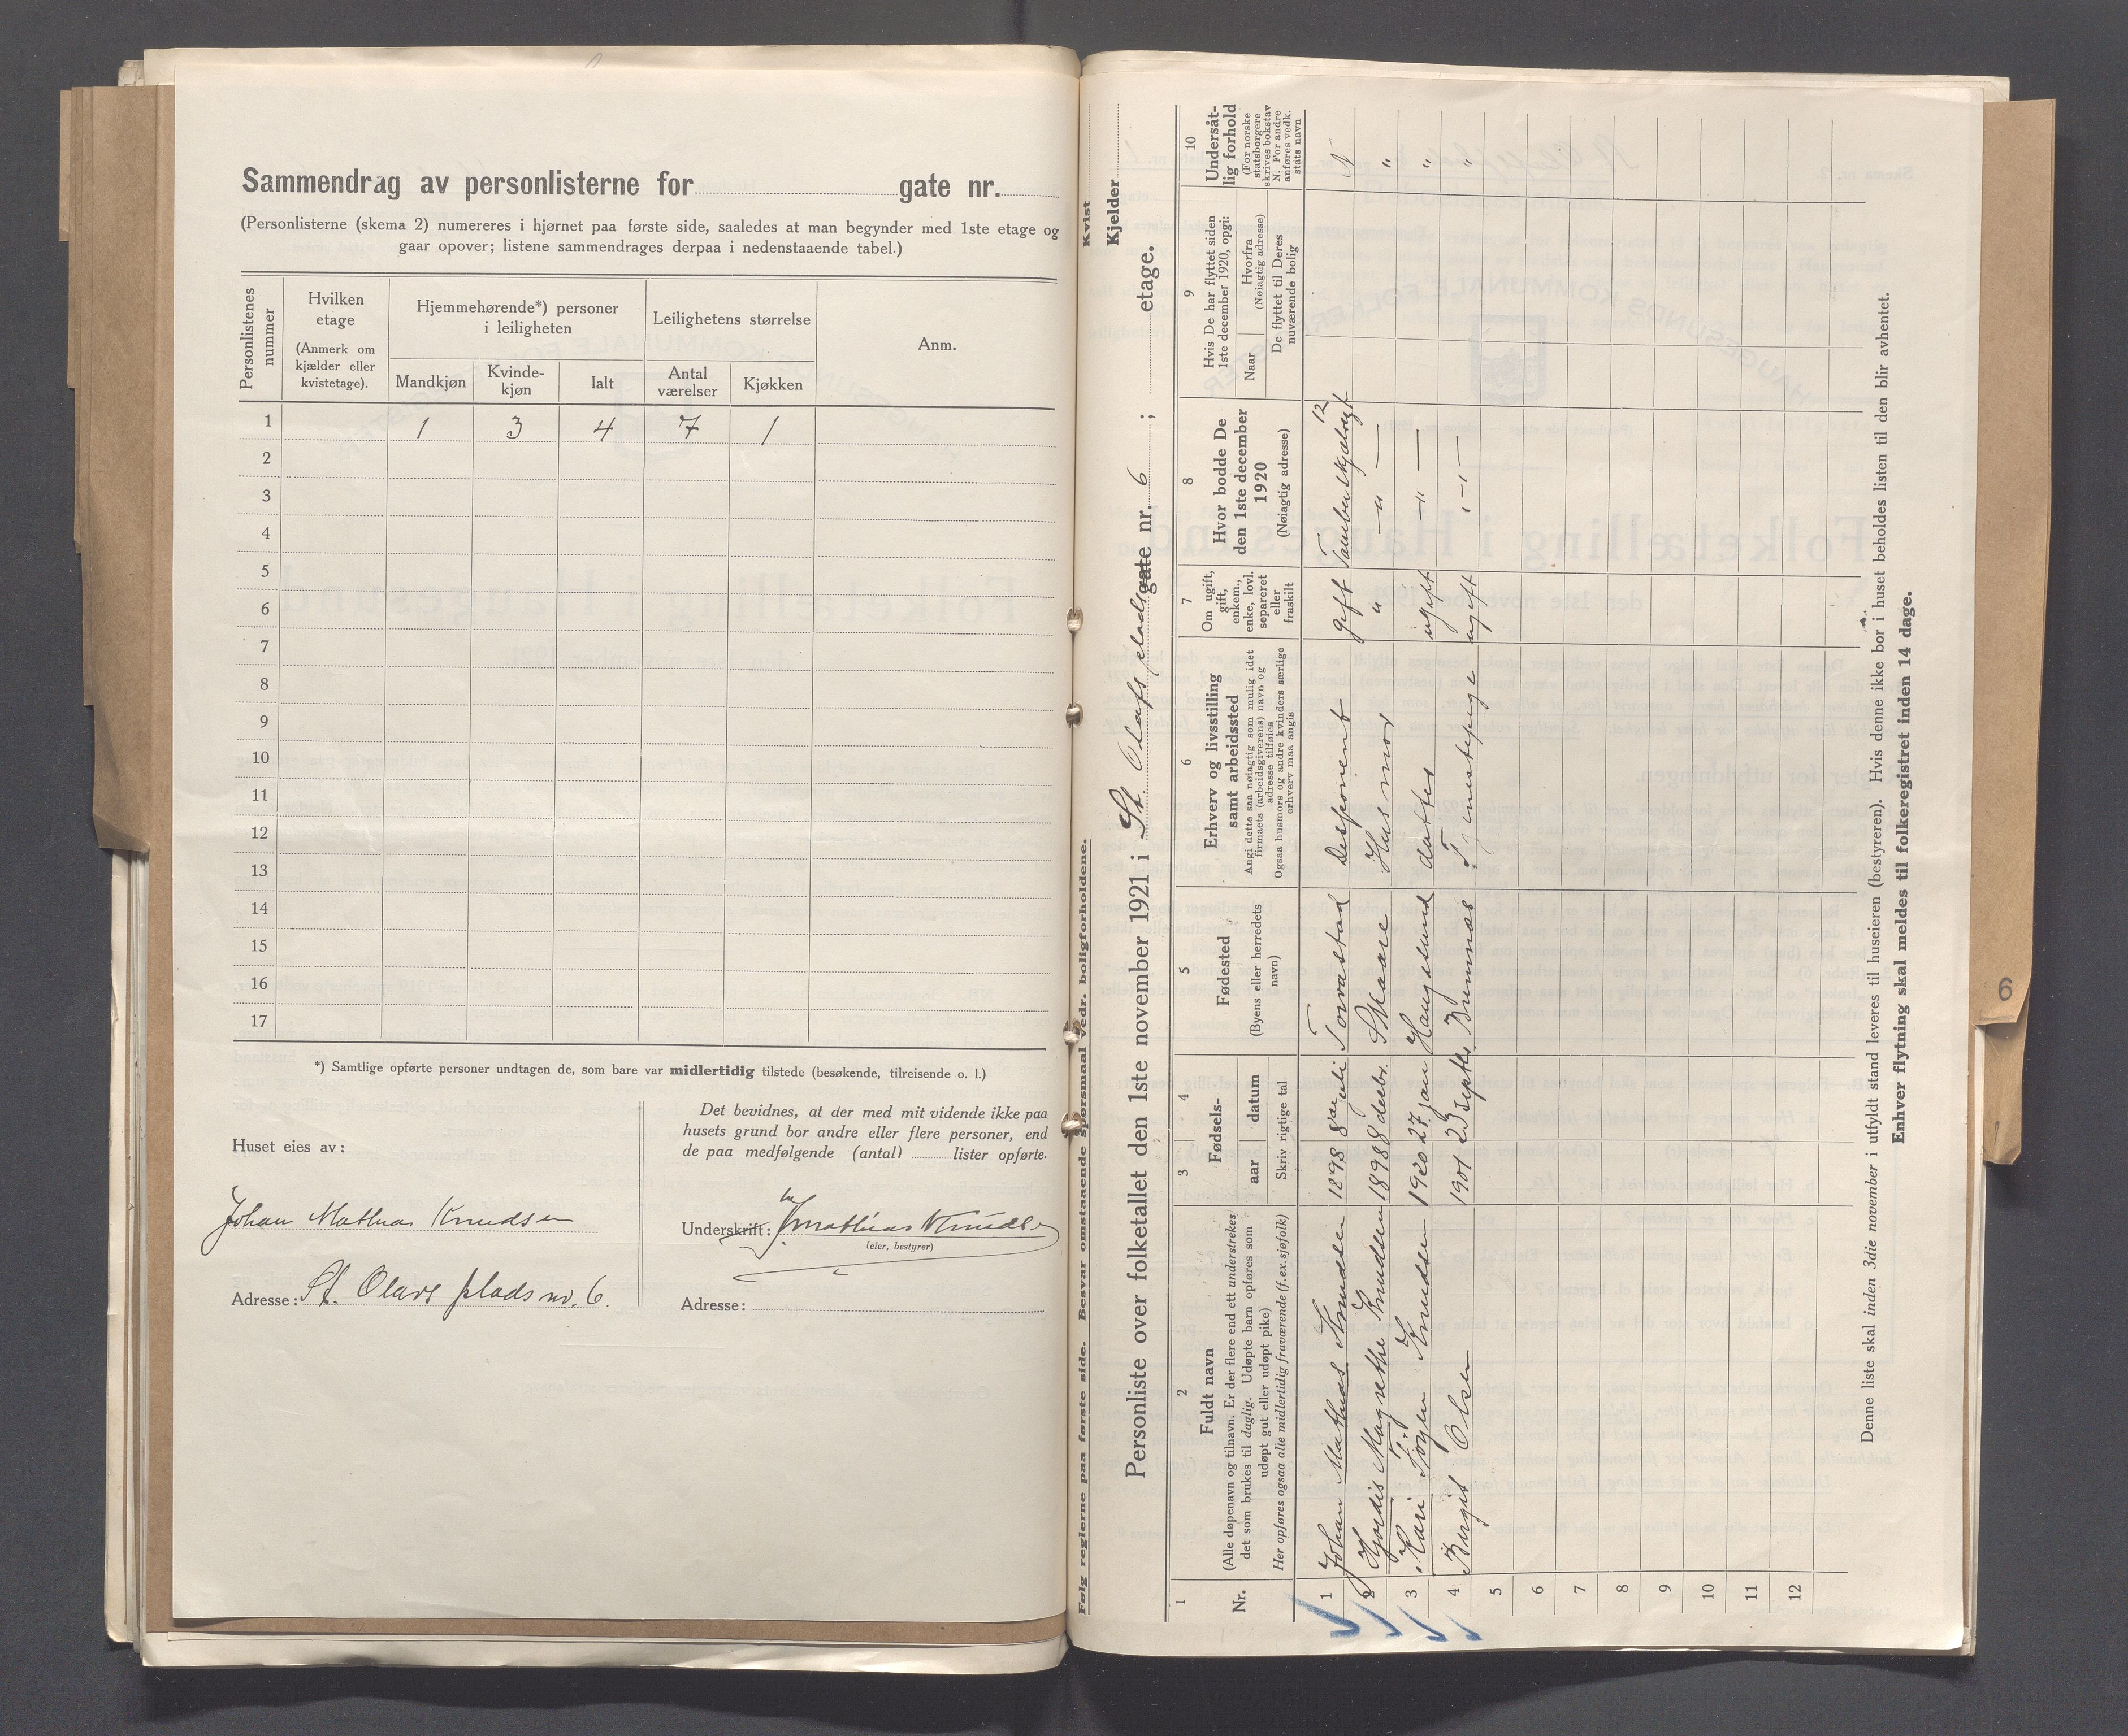 Sammendrag av personlisterne for gate nr.
(Personlisterne (skema 2) numereres i hjørnet paa første side, saaledes at man begynder med 1ste etage og
gaar opover; listene sammendrages derpaa i nedenstaaende tabel.)
Personlistenes nummer
Hvilken etage
(Anmerk om kjælder eller kvistetage).
Hjemmehørende*) personer i leiligheten
Leilighetens størrelse
Anm.
Mandkjøn
Kvinde-kjøn
Ialt
Antal værelser
Kjøkken
1 1 3 4 7 1
2
3
4
5
6
7
8
9
10
11
12
13
14
15
16
17
*) Samtlige opførte personer undtagen de, som bare var midlertidig tilstede (besøkende, tilreisende o. l.)
Huset eies av:
Johan Mathias Knudsen
Adresse: St. Olavs plads no. 6.
Det bevidnes, at der med mit vidende ikke paa
husets grund bor andre eller flere personer, end
de paa medfølgende (antal) lister opførte.
Underskrift: J Mathias Knudsen
(eier, bestyrer)
Adresse:
Følg reglerne paa første side. Besvar omstaaende spørsmaal vedr. boligforholdene.
Kvist
Kjelder
Personliste over folketallet den 1ste november 1921 i St. Olafs plads gate nr. 6 ; etage.
1
Nr.
2
Fuldt navn
(Alle døpenavn og tilnavn. Er der flere end ett understrekes
det som brukes til daglig. Udøpte barn opføres som
udøpt gut eller udøpt pike)
Her opføres ogsaa alle midlertidig fraværende (f.ex.sjøfolk)
3 4
Fødsels-
aar datum
Skriv rigtige tal
5
Fødested
(Byens eller herredets
navn)
6
Erhverv og livsstilling
samt arbeidssted
Angi dette saa nøiagtig som mulig idet
firmaets (arbeidsgiverens) navn og
adresse tilføies
Ogsaa husmors og andre kvinders særlige
erhverv maa angis
7
Om ugift,
gift,
enkem.,
enke, lovl.
separeret
eller
fraskilt
8
Hvor bodde De
den 1ste december
1920
(Nøiagtig adresse)
9
Hvis De har flyttet siden
1ste december 1920, opgi:
Naar
Hvorfra
(Nøiagtig adresse)
De flyttet til Deres
nuværende bolig
10
Undersåt-
lig forhold
(For norske
statsborgere
skrives bokstav
N. For andre
anføres vedk.
stats navn
1 Johan Mathias Knudsen 1898 8de juli Torvastad Disponent gift 12 N
2 Hjordis Magrethe Knudsen 1898 8 decbr. Skaare Husmor " — " — "
3 Kari Knudsen 1920 27 jan Haugesund datter ugift — " — "
4 Bergit Olsen 1901 23 septbr. Bremnes Tjenestepige ugift — " — "
5
6
7
8
9
10
11
12
Denne liste skal inden 3die november i utfyldt stand leveres til huseieren (bestyreren). Hvis denne ikke bor i huset beholdes listen til den blir avhentet.
Enhver flytning skal meldes til folkeregistret inden 14 dage.
6